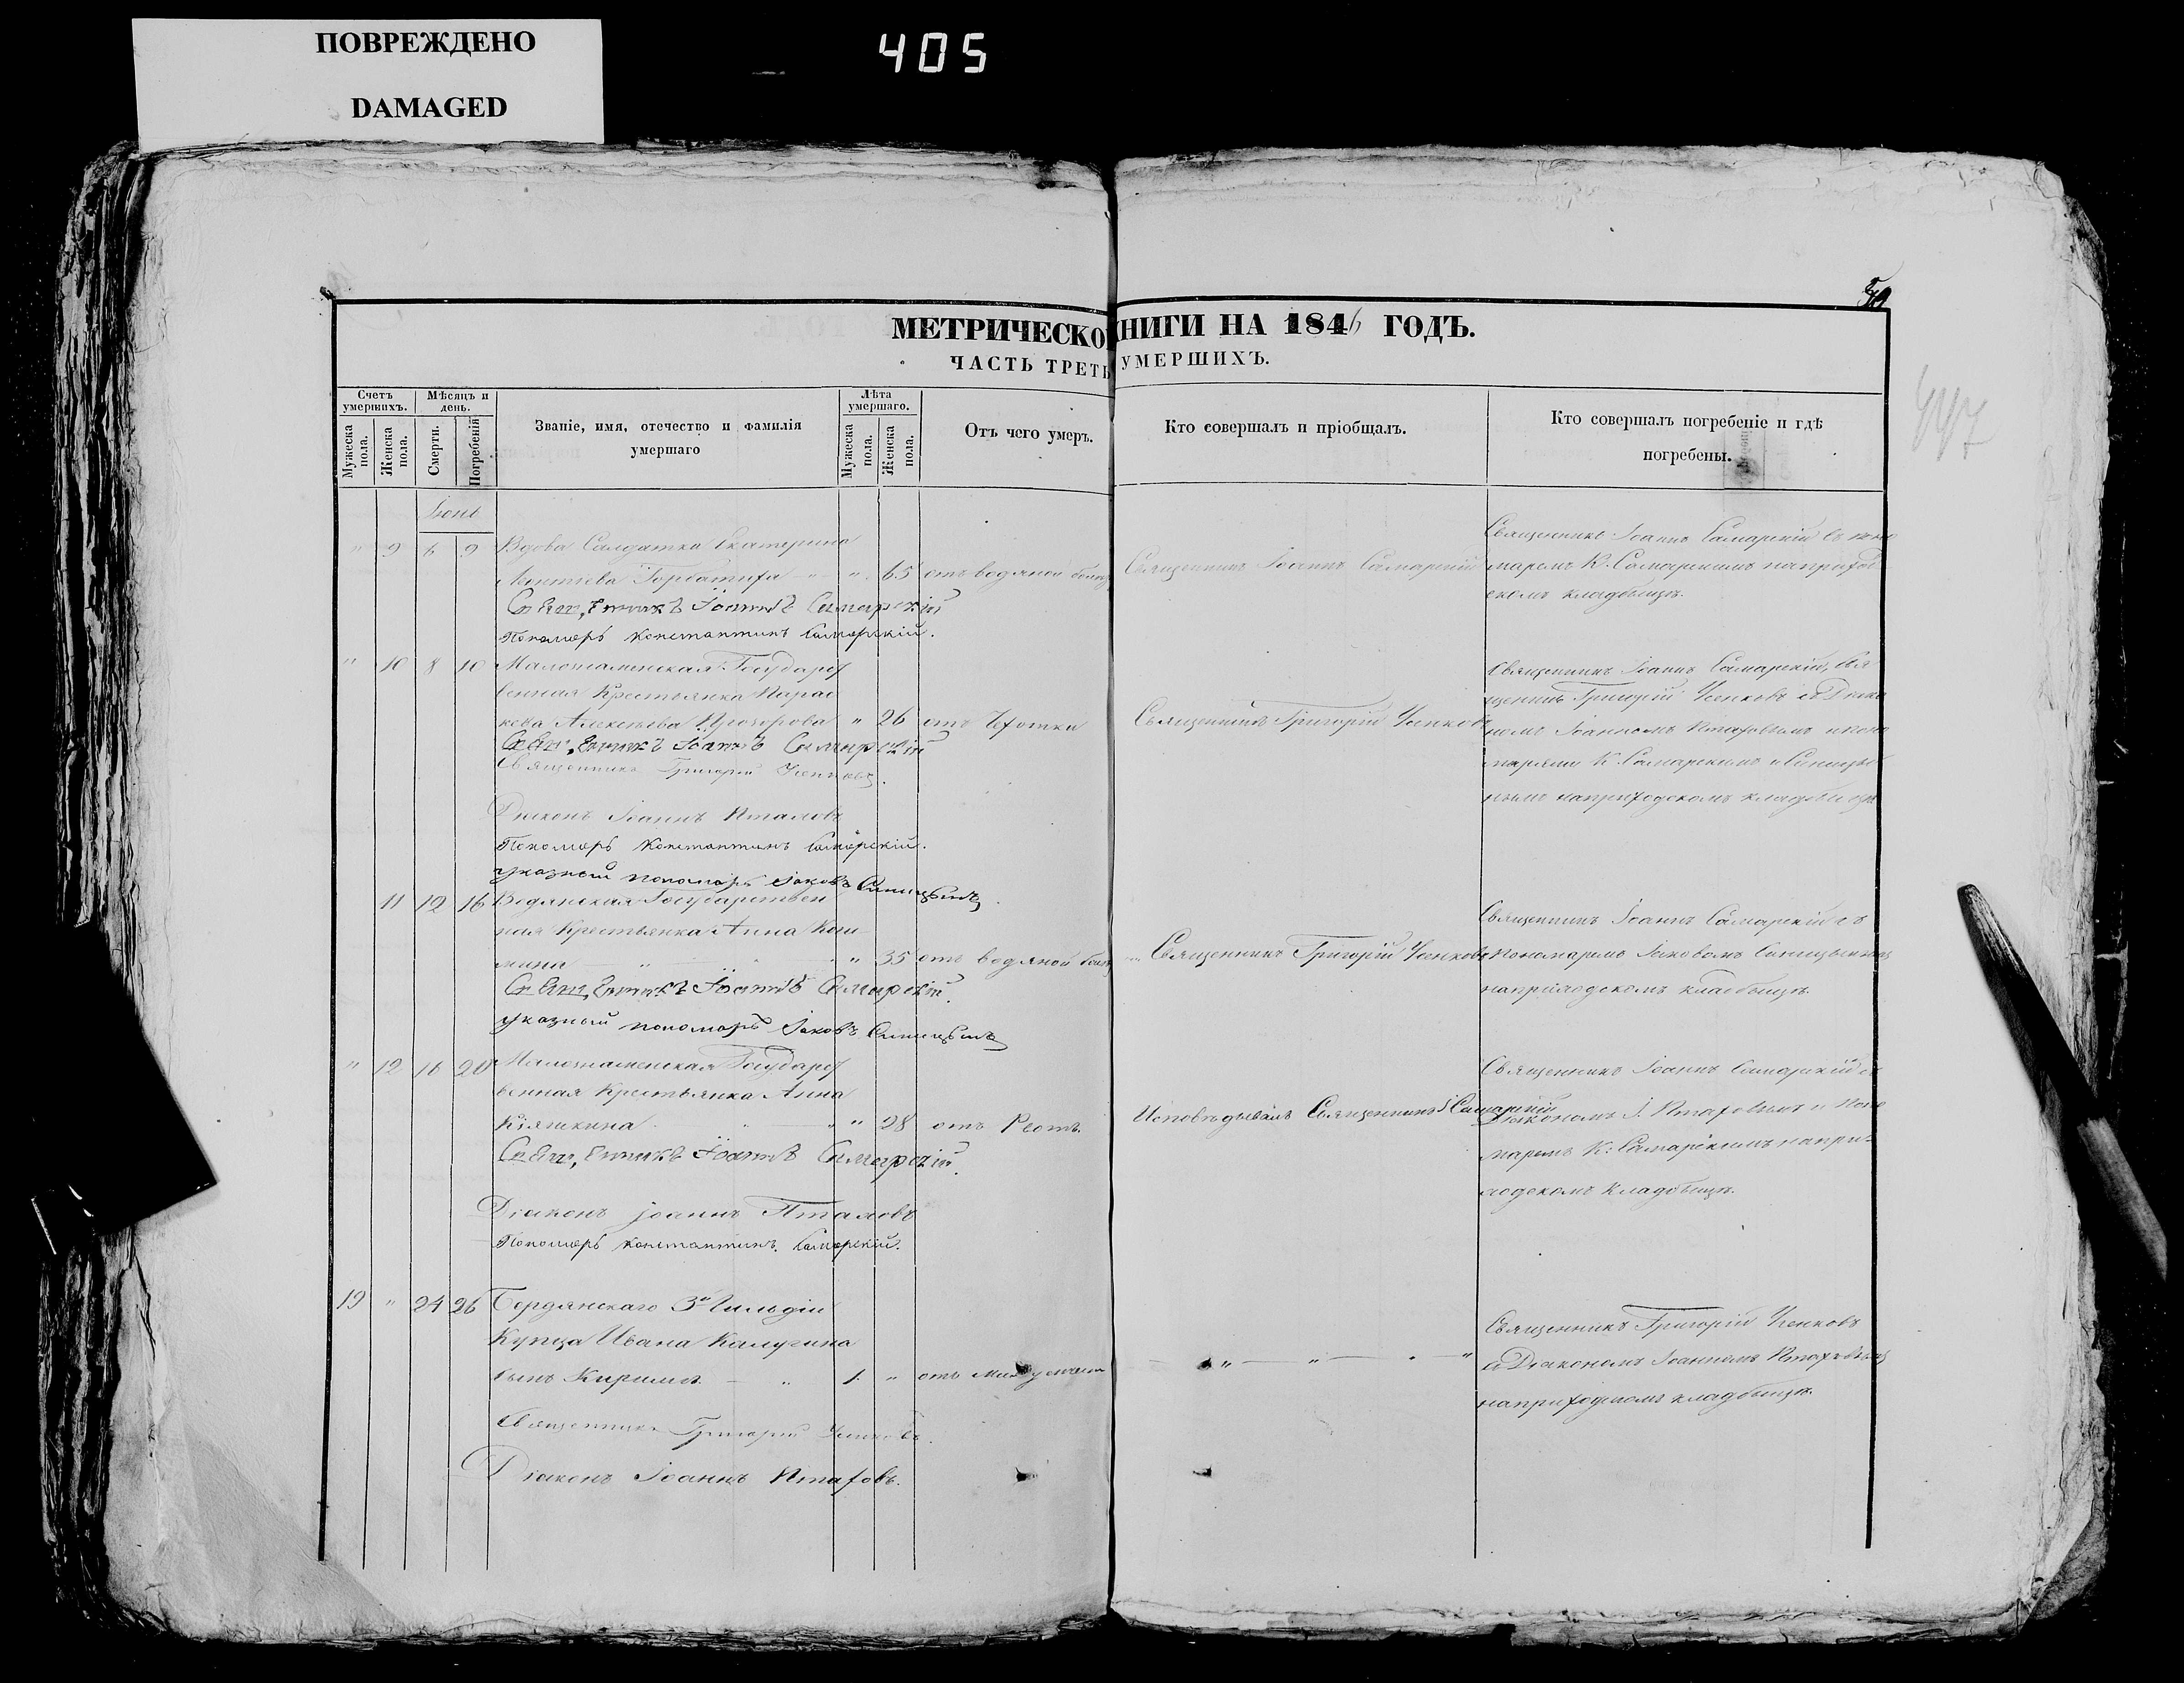 ПОВРЕЖДЕНО
DAMAGED
405
МЕТРИЧЕСКО КНИГИ НА 1846 ГОДЪ.
ЧАСТЬ ТРЕТЬ УМЕРШИХЪ.
Счетъ умершихъ.
Мужеска пола.
Женска пола.
Мѣсяцъ и день.
Смерти.
Погребенія
Званіе, имя, отечество и фамилія
умершаго
Лѣта умершаго.
Мужеска пола.
Женска пола.
Отъ чего умеръ.
Кто совершалъ и пріобщалъ.
Кто совершалъ погребеніе и гдѣ
погребены.
447
" 9 6 9 Вдова Салдатка Екатерина
Леонтіева " 65 отъ водяной
Священникъ Іоаннъ Самарскій
Пономарь Константинъ Самарскій.
Священникъ Іоаннъ Самарскій
Священникъ Іоаннъ Самарскій съ поно
маремъ К. Самарскимъ наприход
скомъ кладбищѣ.
" 10 8 10 Малознаменская Государст
венная Крестьянка Парас
кева Алексѣева " 26 отъ Чахотки
Священникъ Іоаннъ Самарскій
Священникъ Григорій Усенковъ
Діаконъ Іоаннъ
Пономарь Константинъ Самарскій.
указный пономарь Іаковъ Синицынъ
Священникъ Григорій Усенковъ
Священникъ Іоаннъ Самарскій, Свя
щенникъ Григорій Усенковъ съ Діако
номъ Іоанномъ и поно
марями К. Самарскимъ и Синицы
нымъ наприходскомъ кладбищѣ
11 12 16 Водянская Государствен
ная Крестьянка Анна
" 35 отъ водяной
Священникъ Іоаннъ Самарскій.
указный пономарь Іаковъ Синицынъ
Священникъ Григорій Усенковъ
Священникъ Іоаннъ Самарскій съ
пономаремъ Іаковомъ Синицынымъ
наприходскомъ кладбищѣ.
" 12 16 20 Малознаменская Государст
венная Крестьянка Анна
" 28 отъ
Священникъ Іоаннъ Самарскій.
Діаконъ Іоаннъ
Пономарь Константинъ Самарскій.
Исповѣдывалъ Священникъ І Самарскій
Священникъ Іоаннъ Самарскій съ
Діакономъ І. и поно
маремъ К. Самарскимъ напри-
ходскомъ кладбищѣ.
19 " 24 26 Бердянскаго 3й Гильдіи
Купца Ивана Калугина
сынъ Кирилъ " 1. " отъ
Священникъ Григорій Усенковъ.
Діаконъ Іоаннъ
" " "
Священникъ Григорій Усенковъ
съ Діакономъ Іоанномъ
наприходскомъ кладбищѣ.